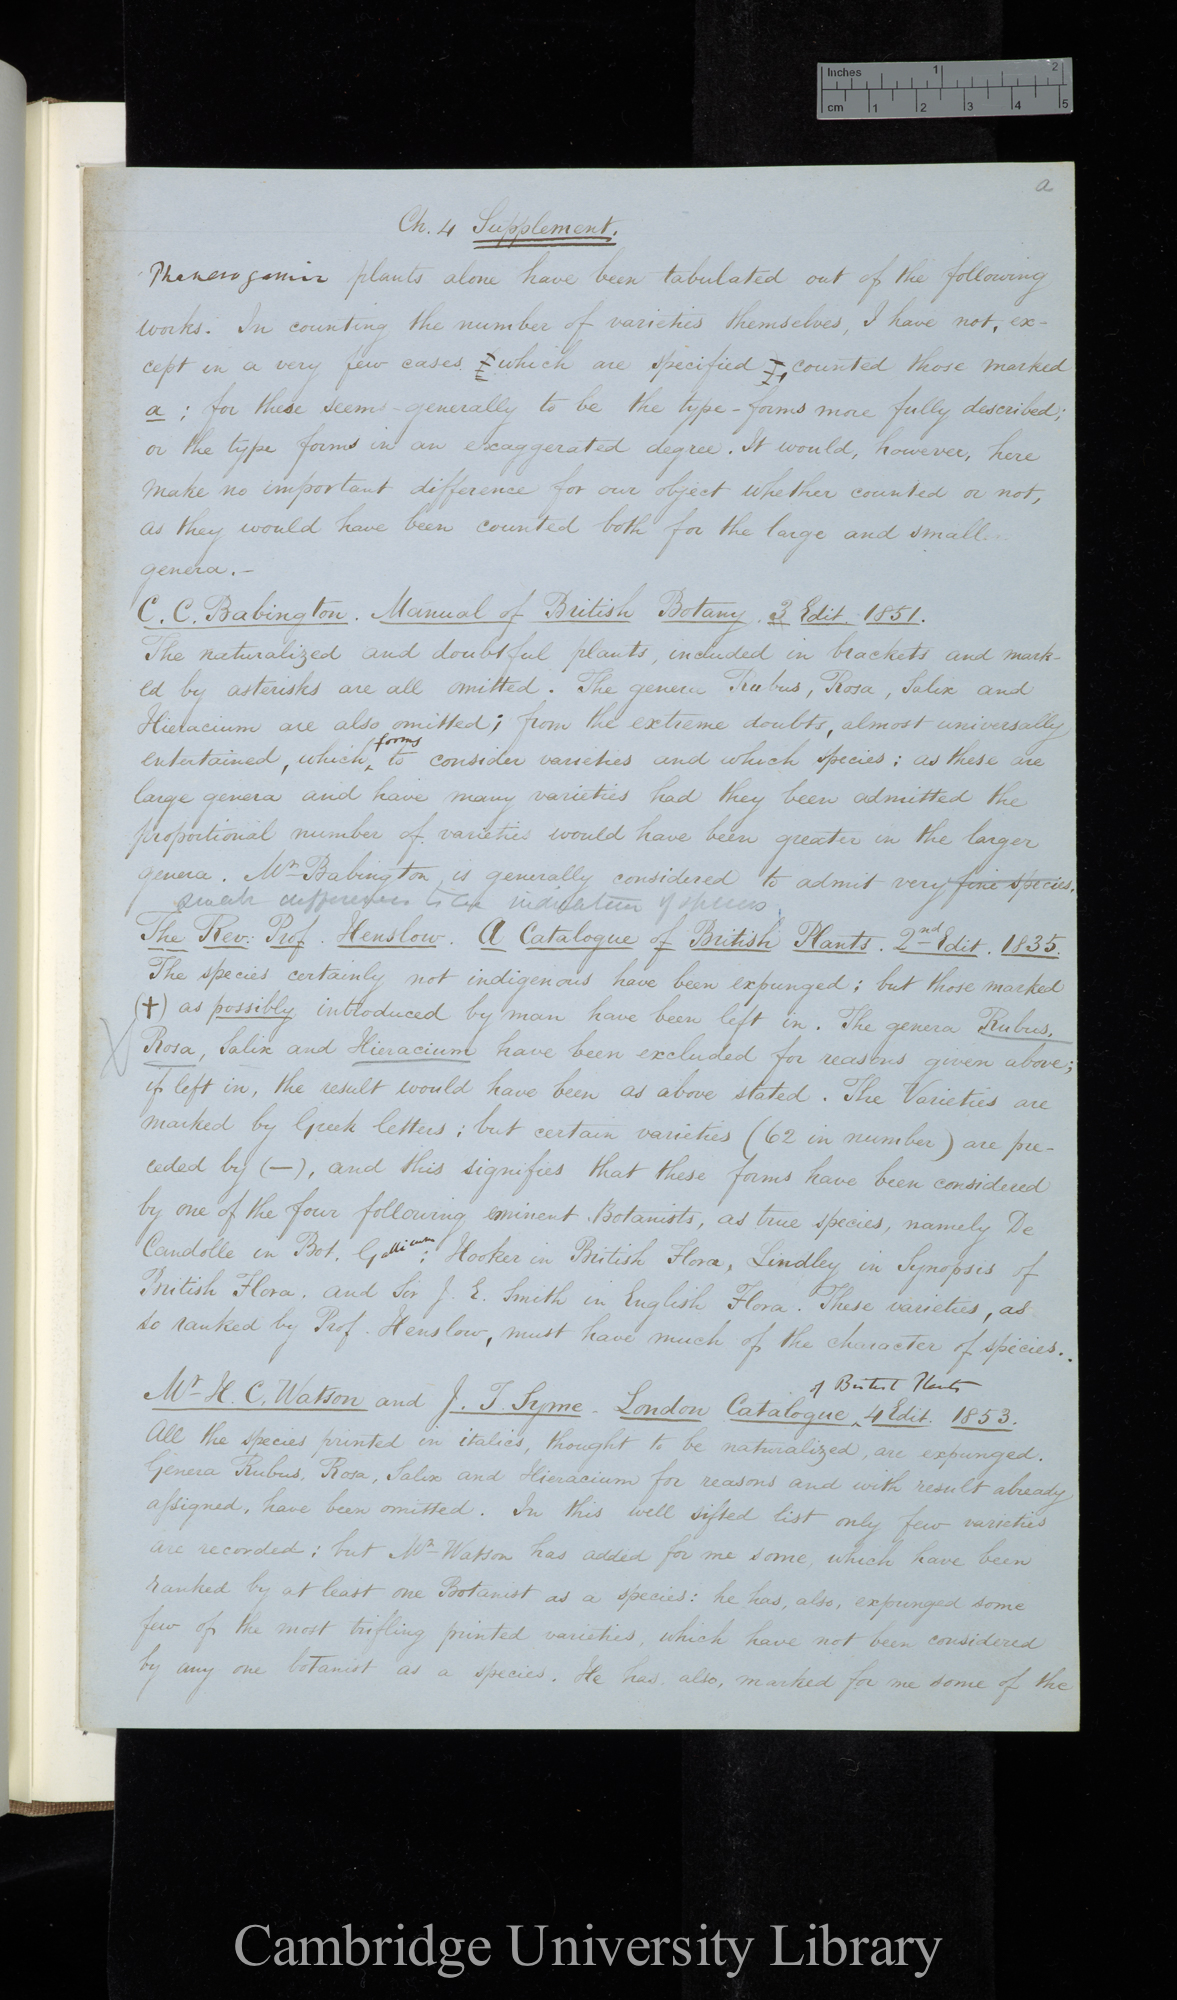 Inches 1 2
cm 1 2 3 4 5
a
Ch. 4 Supplement.
Phanerogamic plants alone have been tabulated out of the following
works. In counting the number of varieties themselves, I have not, ex-
cept in a very few cases which are specified counted those marked
a; for these seems generally to be the type-forms more fully described;
or the type forms in an exaggerated degree. It would, however, here
make no important difference for our object whether counted or not,
as they would have been counted both for the large and small
genera.—
C. C. Babington. Manual of British Botany. 3 Edit. 1851.
The naturalized and doubtful plants, included in brackets and mark-
ed by asterisks are all omitted. The genera Rubus, Rosa, Salix and
Hieracium are also omitted; from the extreme doubts, almost universally
forms
entertained, which to consider varieties and which species; as these are
large genera and have many varieties had they been admitted the
proportional number of varieties would have been greater in the larger
genera. Mr. Babington is generally considered to admit very fine species.
small differences to be indication of species.
The Rev: Prof. Henslow. A Catalogue of British Plants. 2nd Edit. 1835.
The species certainly not indigenous have been expunged; but those marked
(†) as possibly introduced by man have been left in. The genera Rubus,
Rosa, Salix and Hieracium have been excluded for reasons given above;
if left in, the result would have been as above stated. The Varieties are
marked by Greek letters; but certain varieties (62 in number) are pre-
ceded by (—), and this signifies that these forms have been considered
by one of the four following eminent Botanists, as true species, namely De
Candolle in Bot. Gallicum; Hooker in British Flora, Lindley in Synopsis of
British Flora. and Sir J. E. Smith in English Flora. These varieties, as
so ranked by Prof. Henslow, must have much of the character of species.
of British Plants
Mr. H. C. Watson and J. T. Syme - London Catalogue 4 Edit. 1853.
All the species printed in italics, thought to be naturalized, are expunged.
Genera Rubus, Rosa, Salix and Hieracium for reasons and with result already
assigned, have been omitted. In this well sifted list only few varieties
are recorded; but Mr. Watson has added for me some, which have been
ranked by at least one Botanist as a species: he has, also, expunged some
few of the most trifling printed varieties, which have not been considered
by any one botanist as a species. He has, also, marked for me some of the
Cambridge University Library